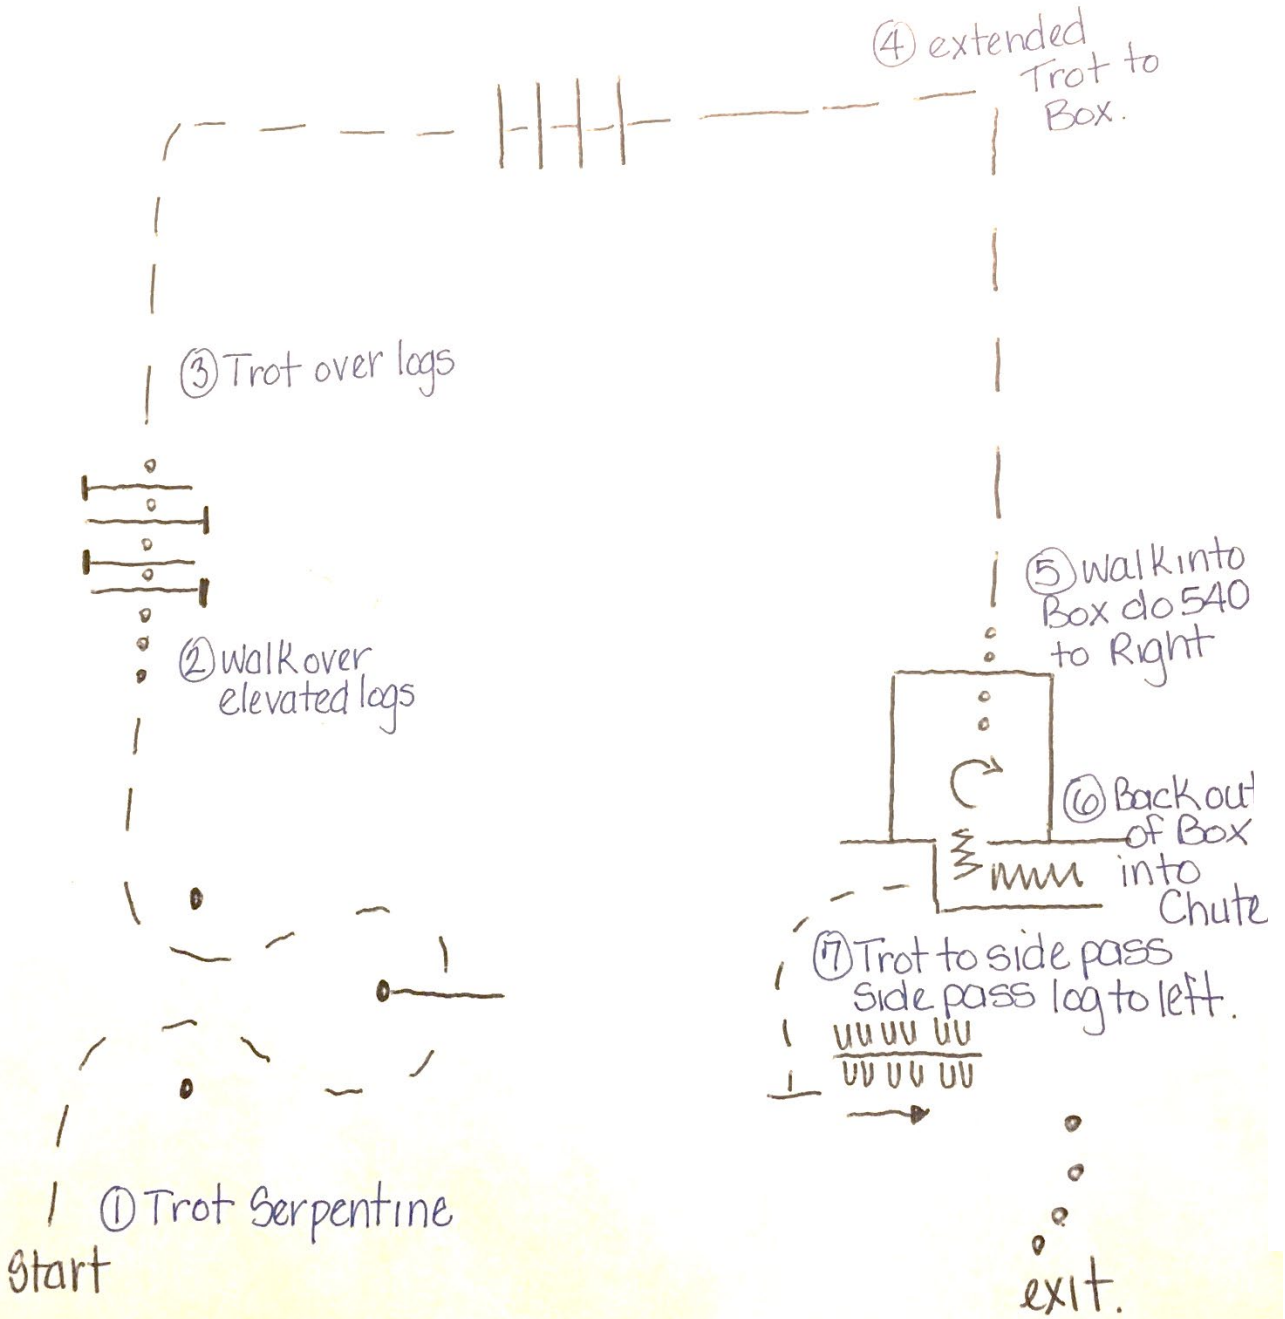 ④ extended
Trot to
Box.
③ Trot over logs
② Walk over
elevated logs
⑤ Walk into
Box do 540
to Right
⑥ Back out
of Box
into
Chute
⑦ Trot to side pass
Side pass log to left.
① Trot Serpentine
Start
exit.